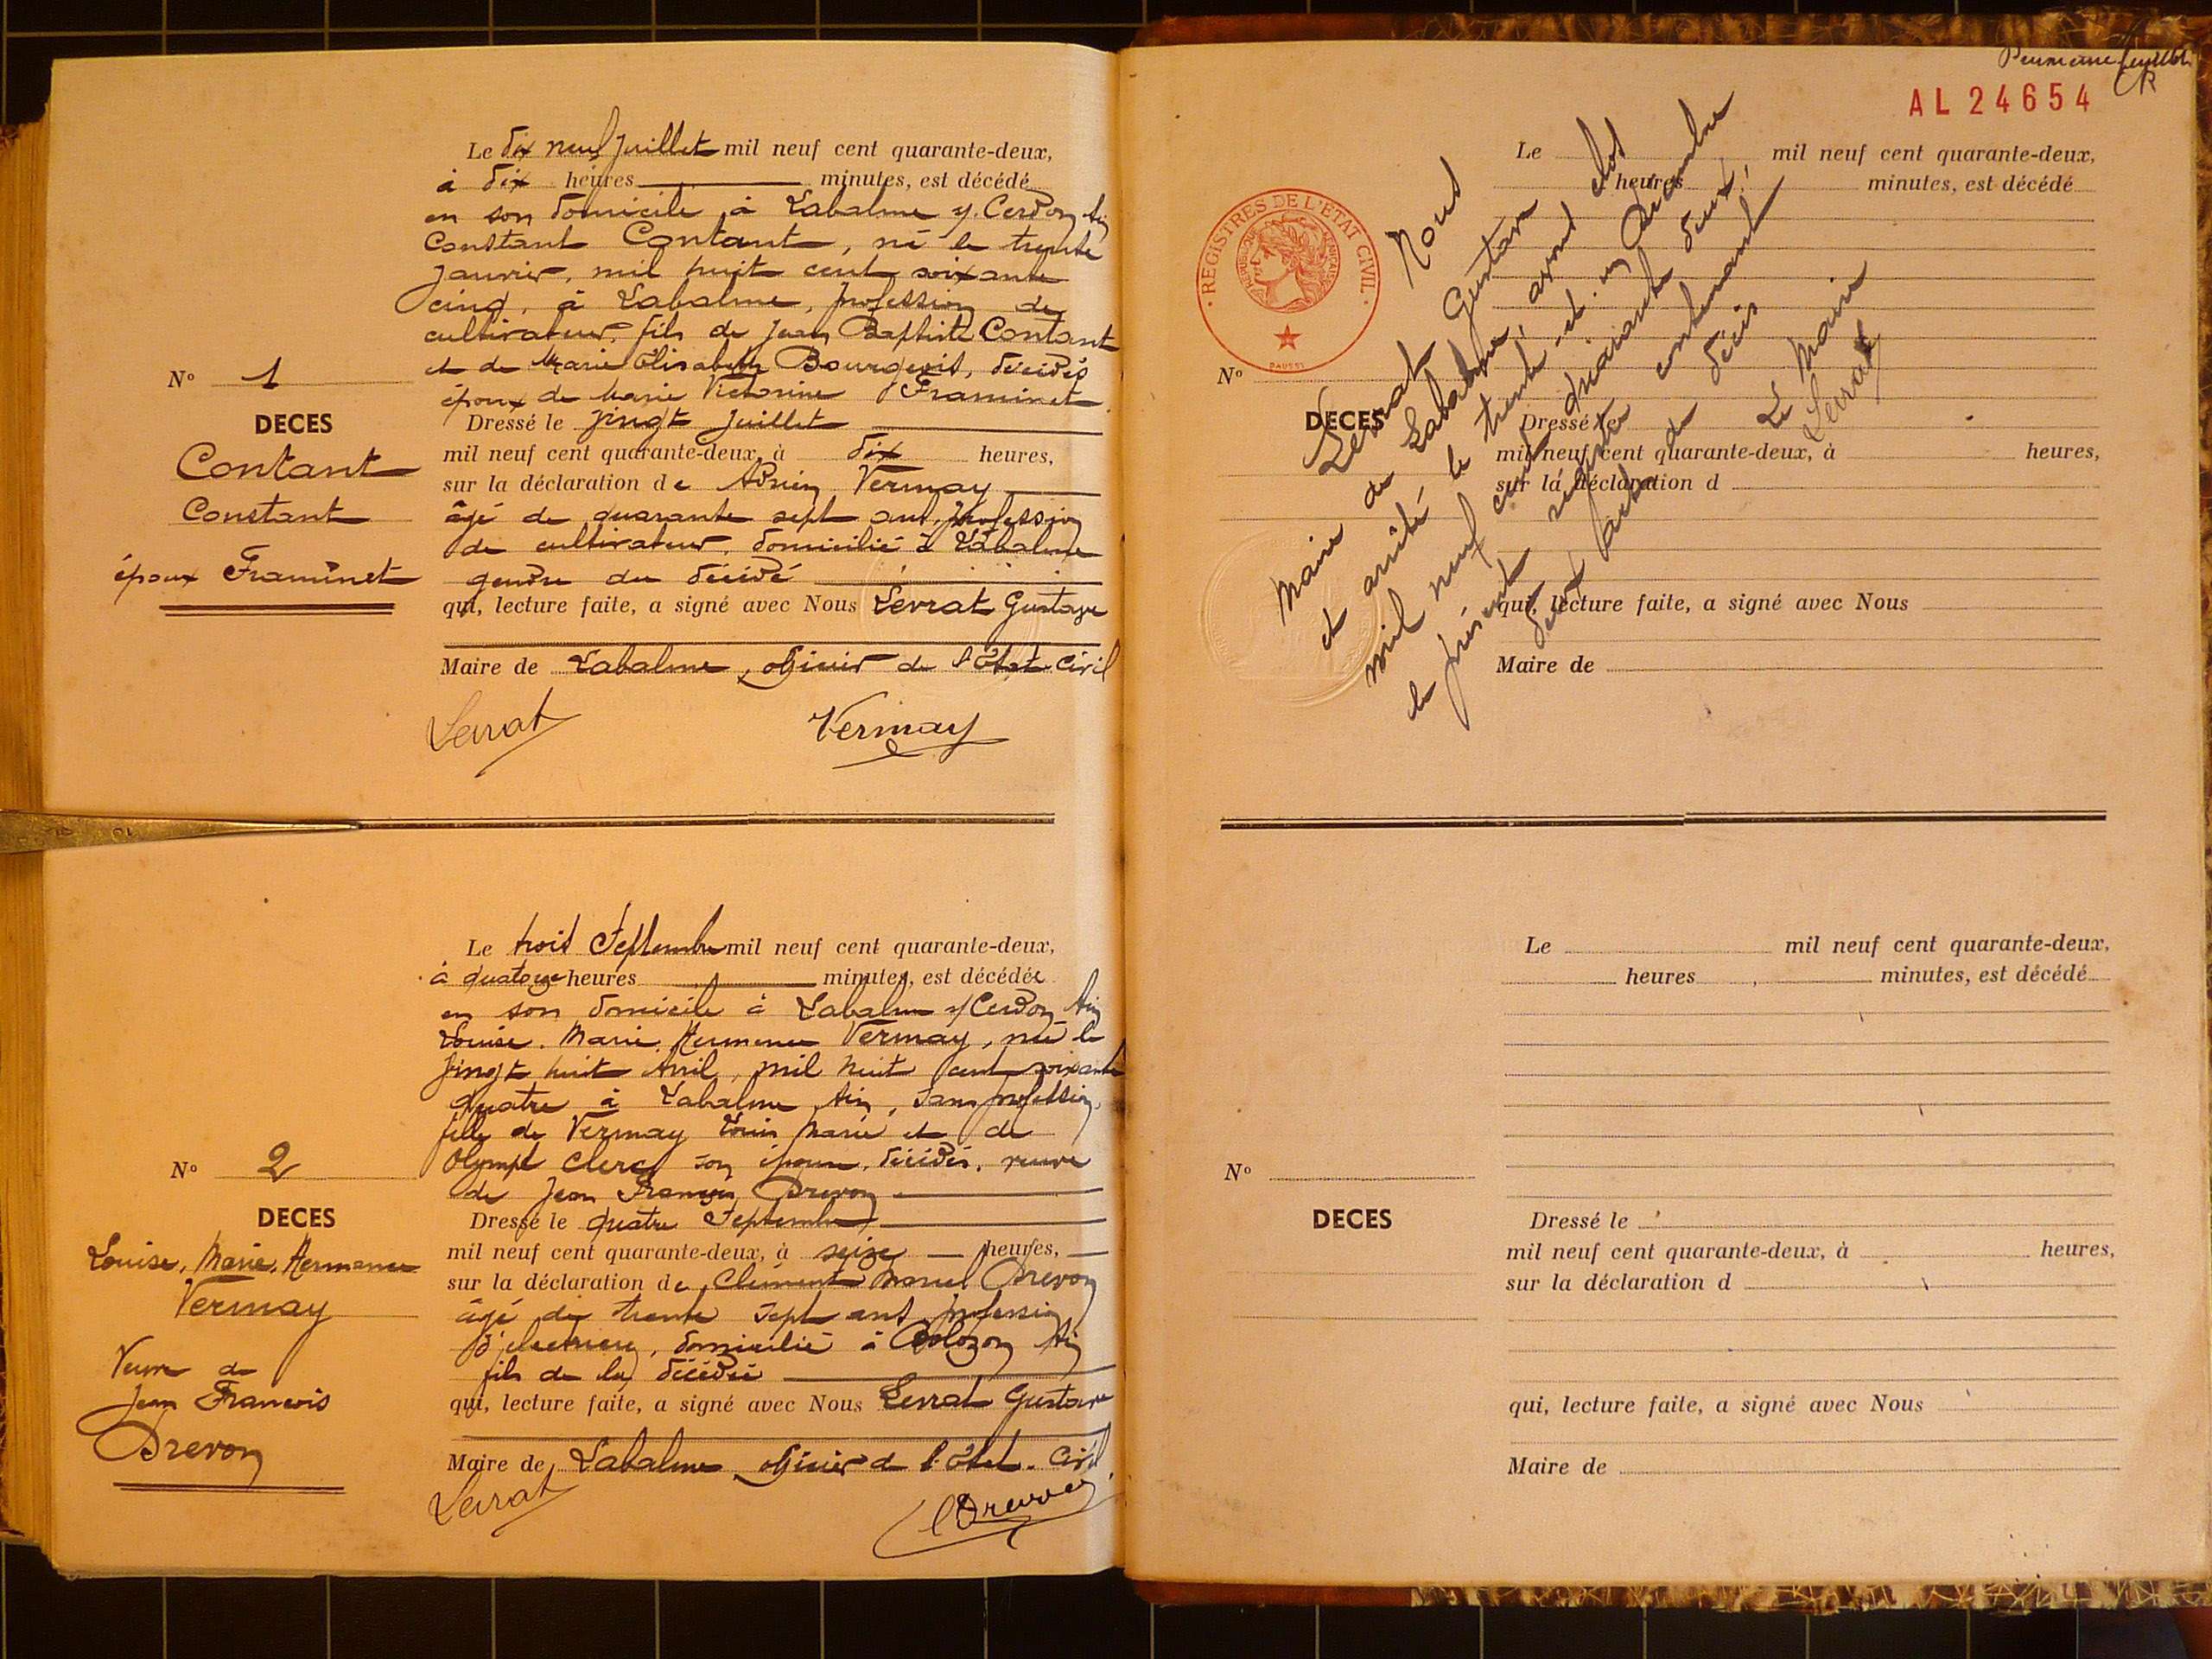 Le dix neuf Juillet mil neuf cent quarante-deux,
à dix heures minutes, est décédé
en son domicile à Labalme s/ Cerdon Ain
Constant Contant, né le trente
Janvier, mil huit cent soixante
cinq, à Labalme, profession de
cultivateur, fils de Jean Baptiste Contant
et de Marie Elisabeth Bourgeois, décédés
époux de Marie Victorine Framinet
N° 1
DECES
Contant
Constant
époux Framinet
Dressé le vingt Juillet
mil neuf cent quarante-deux, à dix heures,
sur la déclaration de Adrien Vermay
âgé de quarante sept ans, profession
de cultivateur, domicilié à Labalme
gendre du décédé
qui, lecture faite, a signé avec Nous Levrat Gustave
Maire de Labalme, officier de l'Etat-Civil
Levrat Vermay
Le trois Septembre mil neuf cent quarante-deux,
à quatorze heures minutes, est décédée
en son domicile à Labalme s/ Cerdon Ain
Louise, Marie, Hermance Vermay, née le
vingt huit Avril, mil huit cent soixante
quatre à Labalme Ain, sans profession,
fille de Vermay Louis Marie et de
Olympe Clerc son épouse, décédés, veuve
de Jean François Drevon
N° 2
DECES
Louise, Marie, Hermance
Vermay
Veuve de
Jean François
Drevon
Dressé le quatre Septembre
mil neuf cent quarante-deux, à seize heures,
sur la déclaration de Clément Marcel Drevon
âgé de trente sept ans profession
d'électricien, domicilié à Bolozon Ain
fils de la décédée
qui, lecture faite, a signé avec Nous Levrat Gustave
Maire de Labalme officier de l'Etat-Civil
Levrat Drevon
AL 24654
REGISTRES DE L'ÉTAT CIVIL
RÉPUBLIQUE FRANÇAISE
DAUSSY
Le mil neuf cent quarante-deux,
heures minutes, est décédé
N°
DECES
Dressé le
mil neuf cent quarante-deux, à heures,
sur la déclaration d
qui, lecture faite, a signé avec Nous
Maire de
Nous
Levrat Gustave
Maire de Labalme, avons clos
et arrêté le trente-et-un Décembre
mil neuf cent quarante deux,
le présent registre contenant
deux actes de décès
Le Maire
Levrat
Le mil neuf cent quarante-deux,
heures minutes, est décédé
N°
DECES
Dressé le
mil neuf cent quarante-deux, à heures,
sur la déclaration d
qui, lecture faite, a signé avec Nous
Maire de